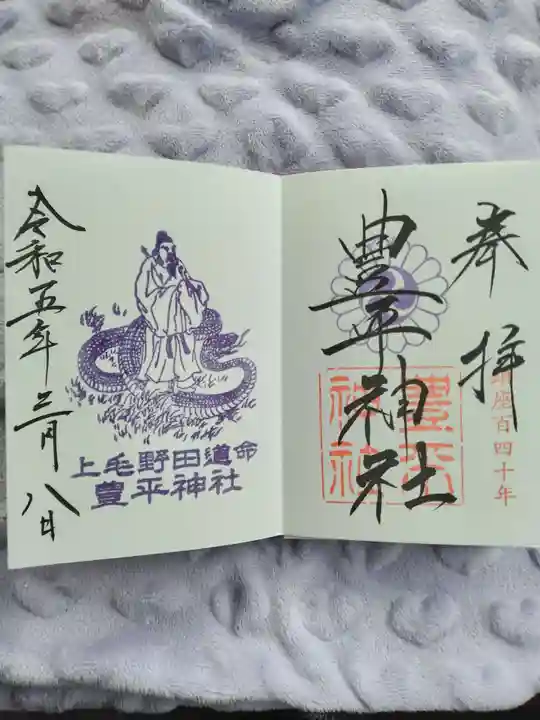 奉拝
鎮座百四十年
豊平神社
豊平神社
上毛野田道命
豊平神社
令和五年三月八日